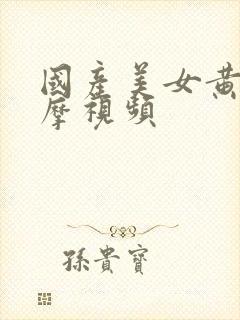 國產美女黃
摩視頻
孫貴寶